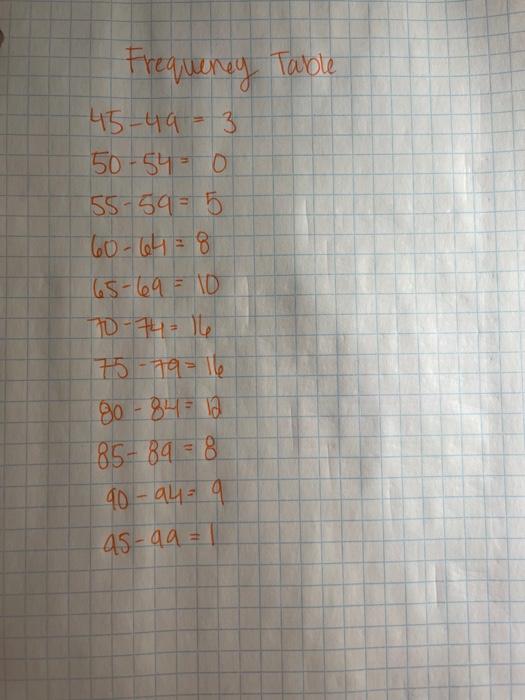 Frequency Table
45-49 = 3
50-54 = 0
55-59 = 5
60-64 = 8
65-69 = 10
70-74 = 16
75-79 = 16
80-84 = 12
85-89 = 8
90-94 = 9
95-99 = 1